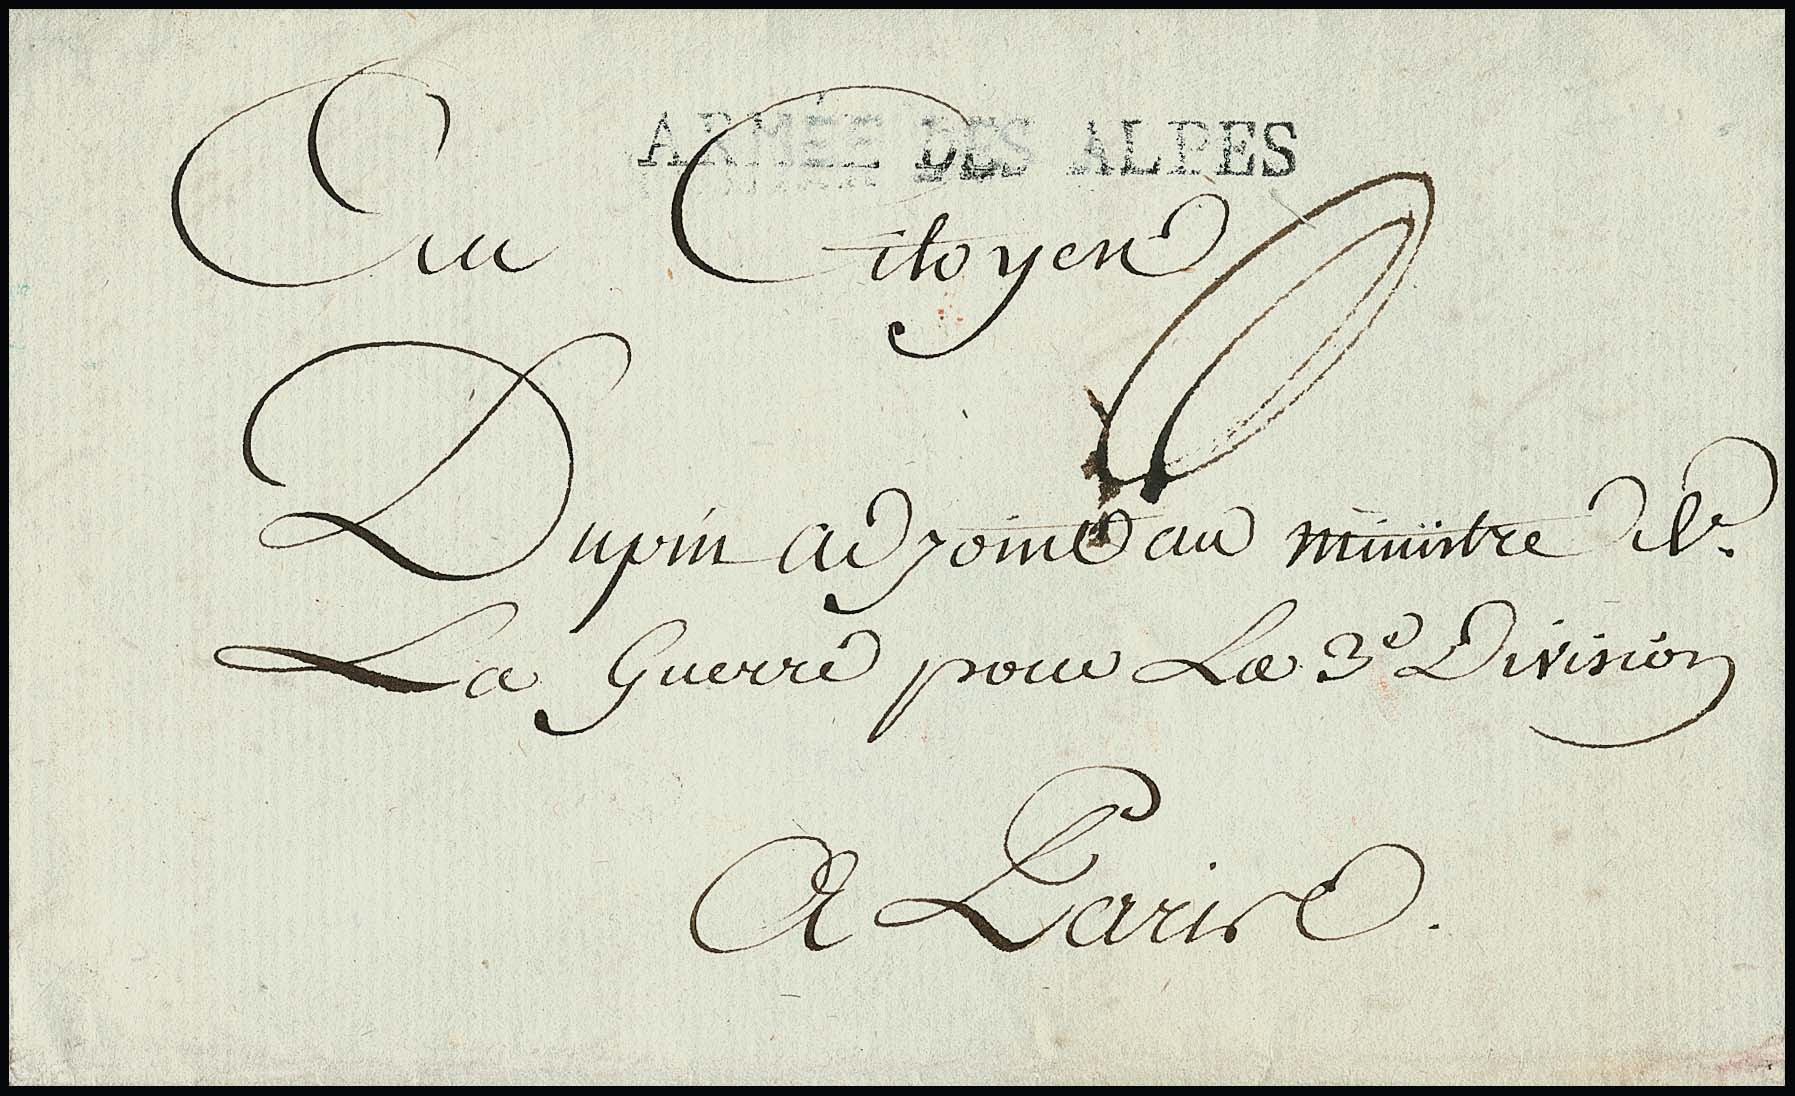 ARMÉE DES ALPES
Au Citoyen
Dupin adjoint au ministre de
La Guerre pour La 3e Division
A Paris.